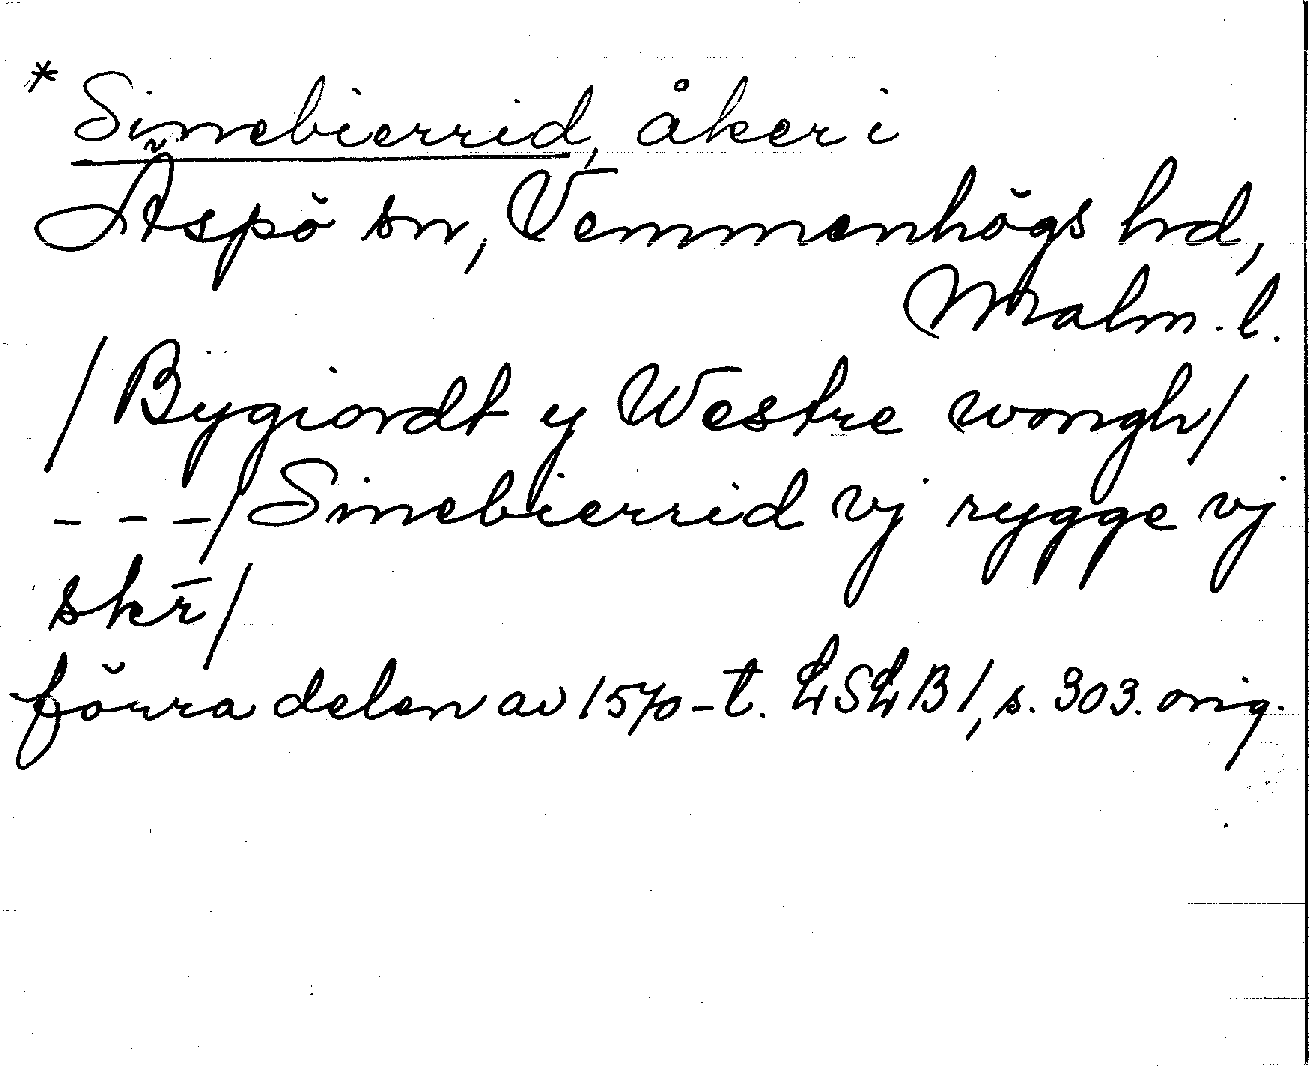 * Simebierrid, åker i
Äspö sn, Vemmenhögs hd,
Malm. l.
/ Bygiordt y Westre wongh /
- - - / Simebierrid vj rygge vj
skr̄ /
förra delen av 1570-t. LSLB 1, s. 303. orig.